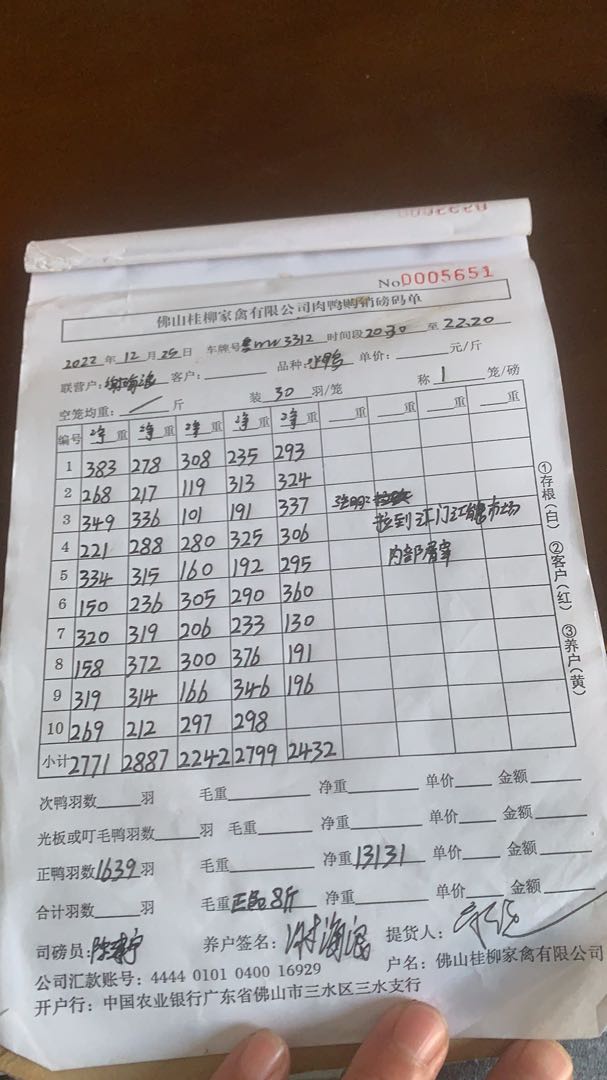 No D005651
佛山桂柳家禽有限公司肉鸭购销磅码单
2022 年 12 月 25 日 车牌号 3312 时间段 20:30 至 22:20
联营户: 客户: 品种: 单价: 元/斤
空笼均重: / 斤 装 30 羽/笼 称 1 笼/磅
编号 净重 净重 净重 净重 净重 重 重 重 重
1 383 278 308 235 293
2 268 217 119 313 324
3 349 336 101 191 337
拉到江门江 市场
4 221 288 280 325 306
内部屠宰
5 334 315 160 192 295
6 150 236 305 290 360
7 320 319 206 233 130
8 158 372 300 376 191
9 319 314 166 346 196
10 269 212 297 298
小计 2771 2887 2242 2799 2432
①存根(白) ②客户(红) ③养户(黄)
次鸭羽数 羽 毛重 净重 单价 金额
光板或叮毛鸭羽数 羽 毛重 净重 单价 金额
正鸭羽数 1639 羽 毛重 净重 13131 单价 金额
合计羽数 羽 毛重 8斤 净重 单价 金额
司磅员: 养户签名: 提货人:
公司汇款账号: 4444 0101 0400 16929 户名: 佛山桂柳家禽有限公司
开户行: 中国农业银行广东省佛山市三水区三水支行